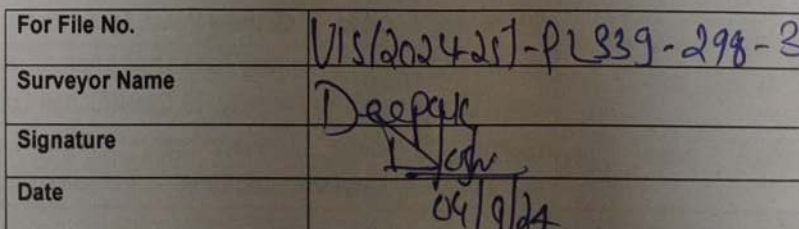 For File No. VIS(2024-25)-PL339-298-3
Surveyor Name Deepak
Signature
Date 04/9/24